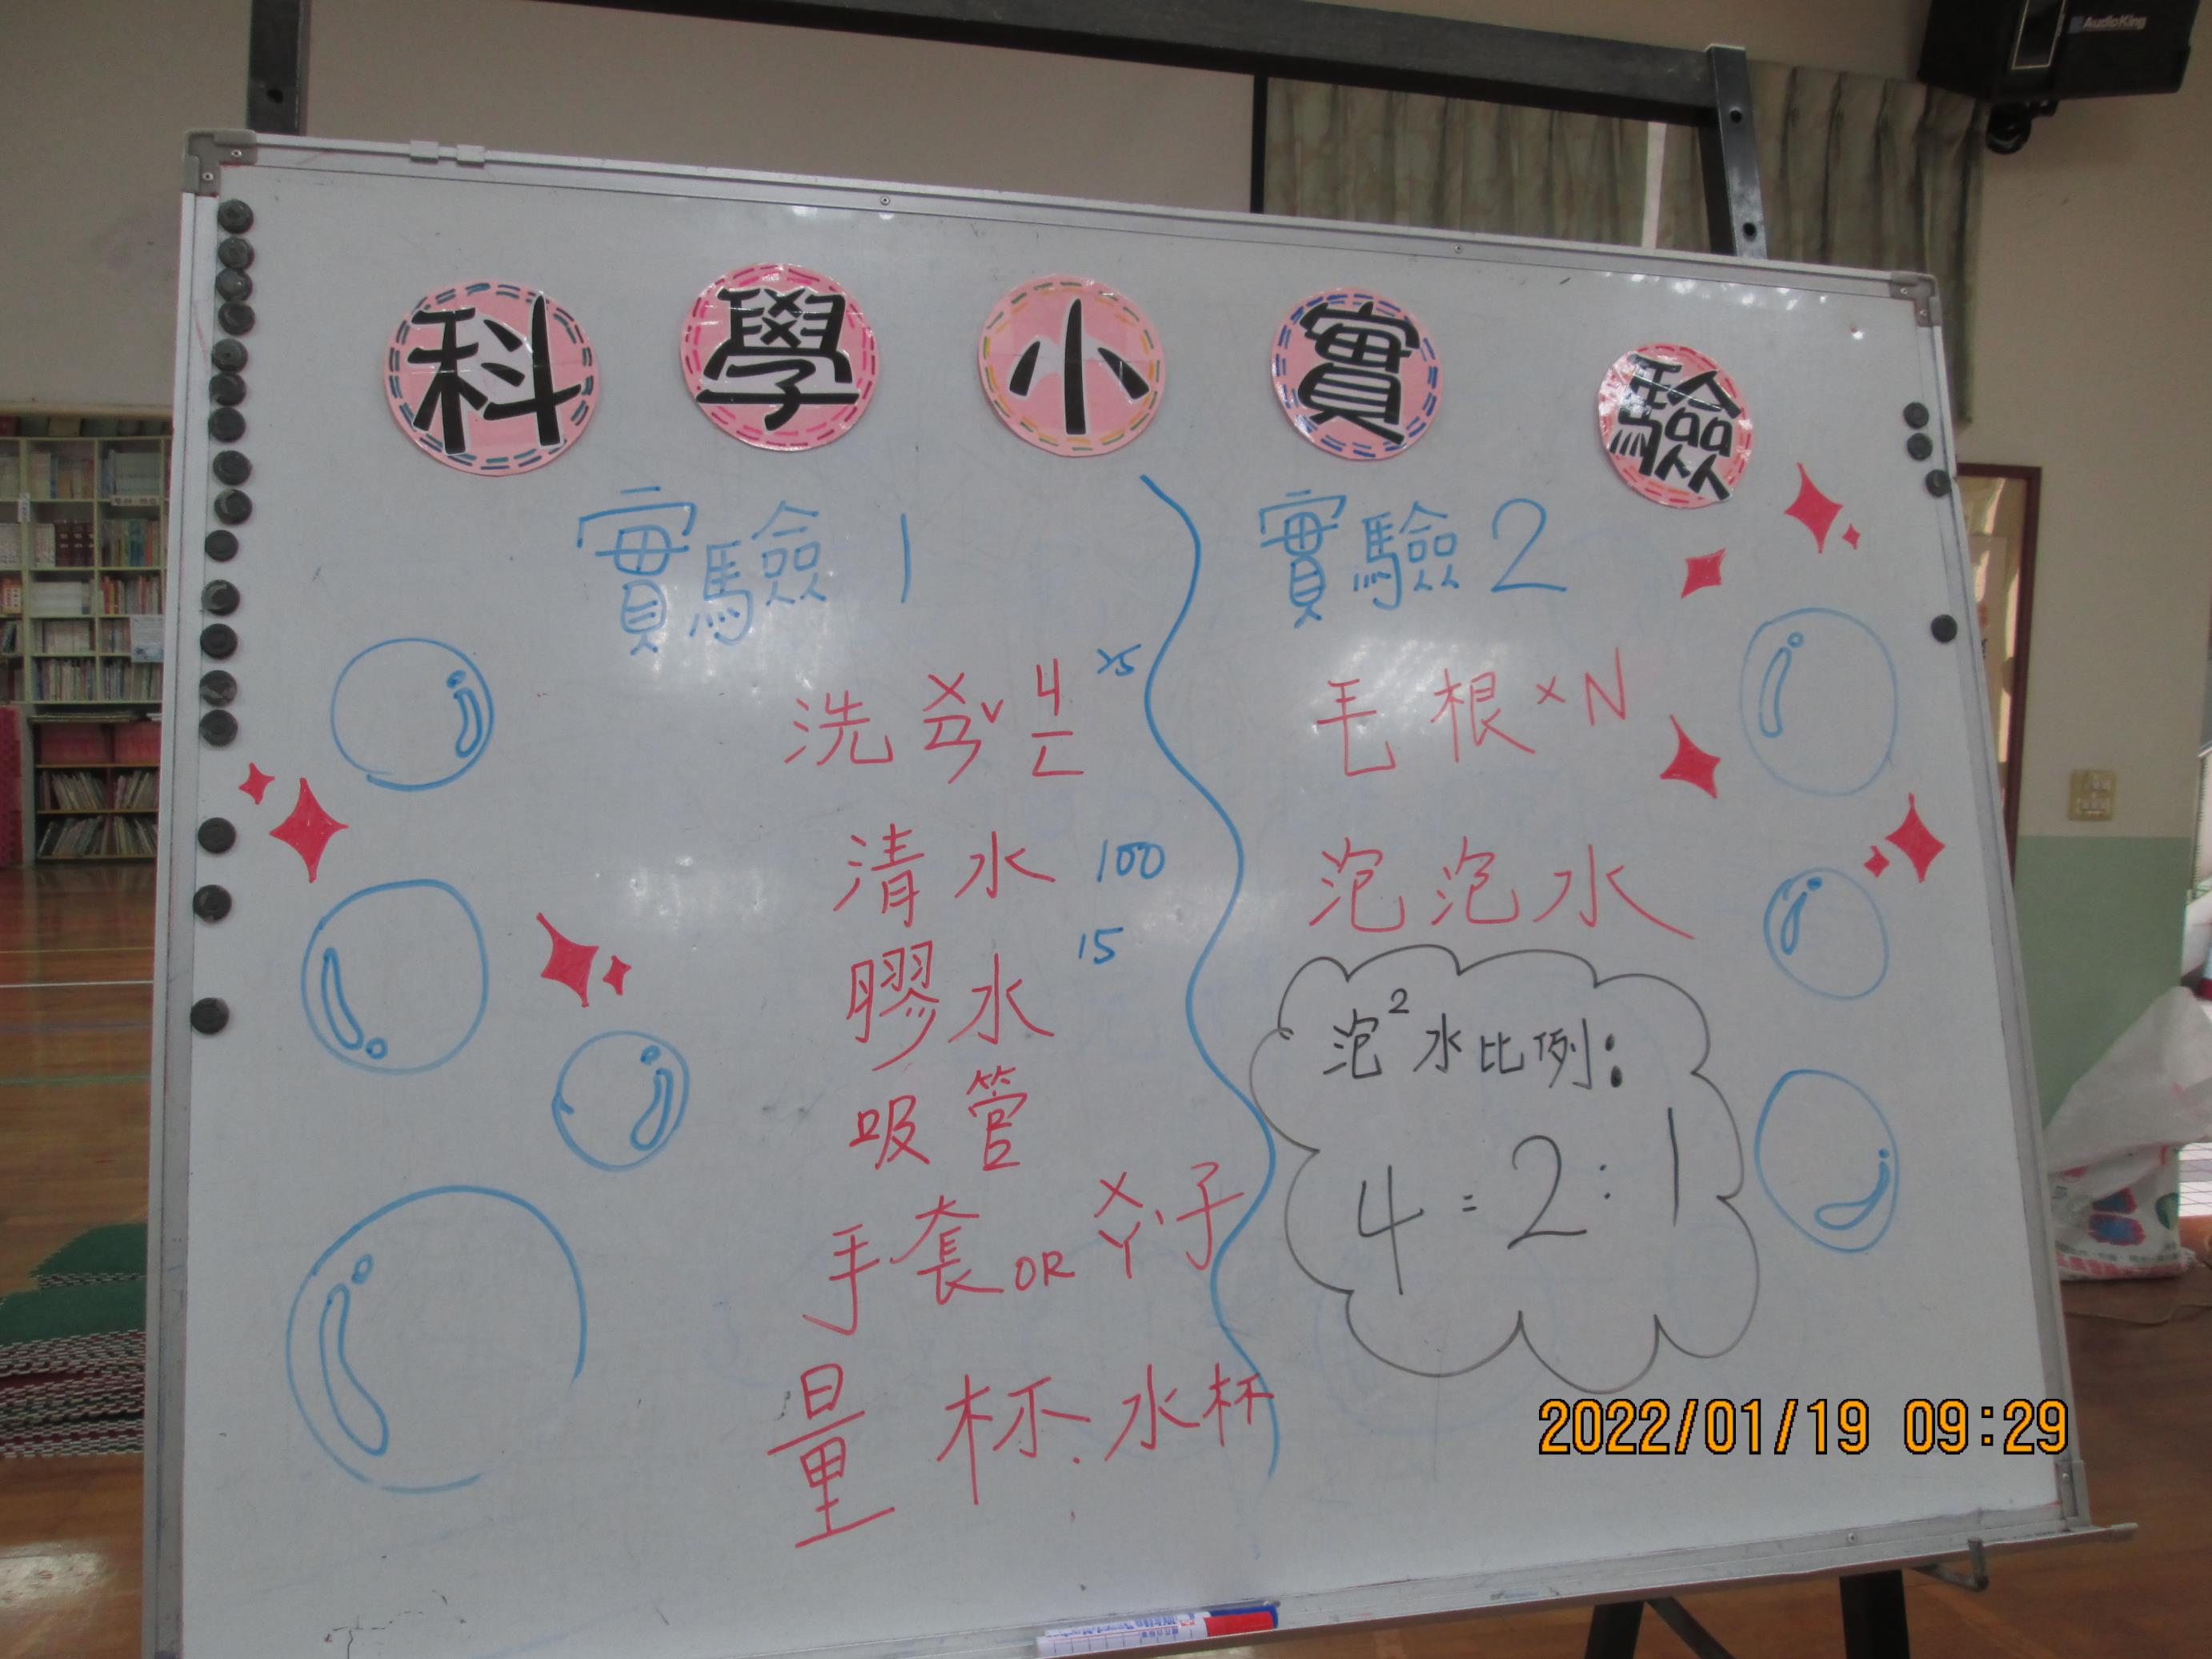 AudioKing
科學小實驗
實驗1
洗ㄨㄢˇㄐㄧㄥ
清水 100
膠水 15
吸管
手套 OR ㄨㄚˋ子
量杯.水杯
實驗2
毛根×N
泡泡水
泡²水比例:
4:2:1
2022/01/19 09:29